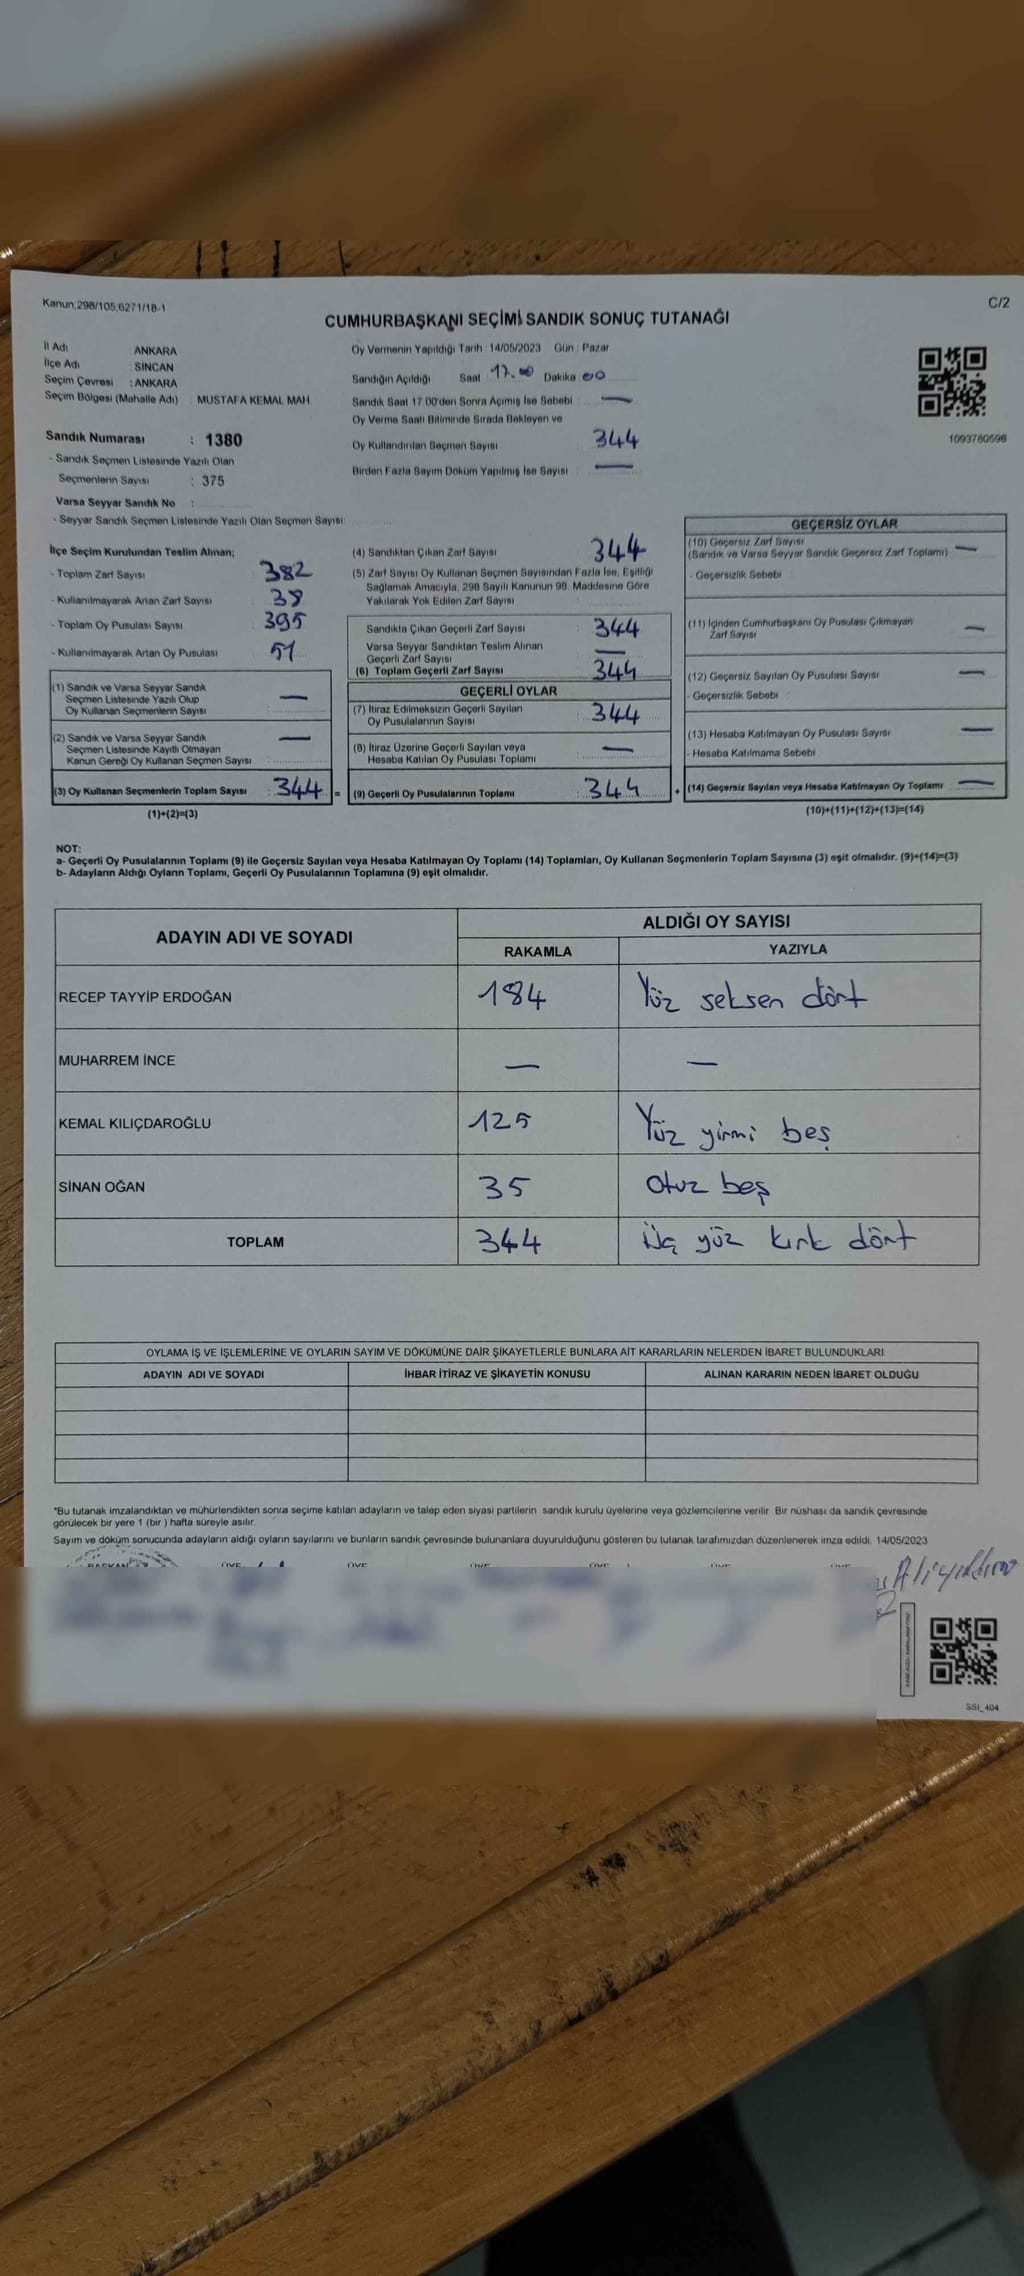 Kanun;298/105,6271/18-1
C/2
CUMHURBAŞKANI SEÇİMİ SANDIK SONUÇ TUTANAĞI
İl Adı : ANKARA
İlçe Adı : SİNCAN
Seçim Çevresi : ANKARA
Seçim Bölgesi (Mahalle Adı) : MUSTAFA KEMAL MAH.
Oy Vermenin Yapıldığı Tarih : 14/05/2023 Gün : Pazar
Sandığın Açıldığı Saat 17.00 Dakika 00
Sandık Saat 17.00'den Sonra Açımış İse Sebebi : —
Oy Verme Saati Bitiminde Sırada Bekleyen ve
Oy Kullandırılan Seçmen Sayısı : 344
Birden Fazla Sayım Döküm Yapılmış İse Sayısı : —
1093760598
Sandık Numarası : 1380
- Sandık Seçmen Listesinde Yazılı Olan
Seçmenlerin Sayısı : 375
Varsa Seyyar Sandık No :
- Seyyar Sandık Seçmen Listesinde Yazılı Olan Seçmen Sayısı:
İlçe Seçim Kurulundan Teslim Alınan;
- Toplam Zarf Sayısı : 382
- Kullanılmayarak Artan Zarf Sayısı : 38
- Toplam Oy Pusulası Sayısı : 395
- Kullanılmayarak Artan Oy Pusulası : 51
(1) Sandık ve Varsa Seyyar Sandık
Seçmen Listesinde Yazılı Olup
Oy Kullanan Seçmenlerin Sayısı : —
(2) Sandık ve Varsa Seyyar Sandık
Seçmen Listesinde Kayıtlı Olmayan
Kanun Gereği Oy Kullanan Seçmen Sayısı : —
(3) Oy Kullanan Seçmenlerin Toplam Sayısı : 344 =
(1)+(2)=(3)
(4) Sandıktan Çıkan Zarf Sayısı : 344
(5) Zarf Sayısı Oy Kullanan Seçmen Sayısından Fazla İse, Eşitliği
Sağlamak Amacıyla; 298 Sayılı Kanunun 98. Maddesine Göre
Yakılarak Yok Edilen Zarf Sayısı :
Sandıkta Çıkan Geçerli Zarf Sayısı : 344
Varsa Seyyar Sandıktan Teslim Alınan
Geçerli Zarf Sayısı : —
(6) Toplam Geçerli Zarf Sayısı : 344
GEÇERLİ OYLAR
(7) İtiraz Edilmeksizin Geçerli Sayılan
Oy Pusulalarının Sayısı : 344
(8) İtiraz Üzerine Geçerli Sayılan veya
Hesaba Katılan Oy Pusulası Toplamı : —
(9) Geçerli Oy Pusulalarının Toplamı : 344 +
GEÇERSİZ OYLAR
(10) Geçersiz Zarf Sayısı
(Sandık ve Varsa Seyyar Sandık Geçersiz Zarf Toplamı) : —
- Geçersizlik Sebebi :
(11) İçinden Cumhurbaşkanı Oy Pusulası Çıkmayan
Zarf Sayısı : —
(12) Geçersiz Sayılan Oy Pusulası Sayısı : —
- Geçersizlik Sebebi :
(13) Hesaba Katılmayan Oy Pusulası Sayısı : —
- Hesaba Katılmama Sebebi :
(14) Geçersiz Sayılan veya Hesaba Katılmayan Oy Toplamı : —
(10)+(11)+(12)+(13)=(14)
NOT:
a- Geçerli Oy Pusulalarının Toplamı (9) ile Geçersiz Sayılan veya Hesaba Katılmayan Oy Toplamı (14) Toplamları, Oy Kullanan Seçmenlerin Toplam Sayısına (3) eşit olmalıdır. (9)+(14)=(3)
b- Adayların Aldığı Oyların Toplamı, Geçerli Oy Pusulalarının Toplamına (9) eşit olmalıdır.
ADAYIN ADI VE SOYADI
ALDIĞI OY SAYISI
RAKAMLA YAZIYLA
RECEP TAYYİP ERDOĞAN 184 Yüz seksen dört
MUHARREM İNCE — —
KEMAL KILIÇDAROĞLU 125 Yüz yirmi beş
SİNAN OĞAN 35 otuz beş
TOPLAM 344 Üç yüz kırk dört
OYLAMA İŞ VE İŞLEMLERİNE VE OYLARIN SAYIM VE DÖKÜMÜNE DAİR ŞİKAYETLERLE BUNLARA AİT KARARLARIN NELERDEN İBARET BULUNDUKLARI
ADAYIN ADI VE SOYADI İHBAR İTİRAZ VE ŞİKAYETİN KONUSU ALINAN KARARIN NEDEN İBARET OLDUĞU
*Bu tutanak imzalandıktan ve mühürlendikten sonra seçime katılan adayların ve talep eden siyasi partilerin sandık kurulu üyelerine veya gözlemcilerine verilir. Bir nüshası da sandık çevresinde
görülecek bir yere 1 (bir ) hafta süreyle asılır.
Sayım ve döküm sonucunda adayların aldığı oyların sayılarını ve bunların sandık çevresinde bulunanlara duyurulduğunu gösteren bu tutanak tarafımızdan düzenlenerek imza edildi. 14/05/2023
BAŞKAN ÜYE ÜYE ÜYE ÜYE ÜYE ÜYE
Ali yıldırım
SSI_404